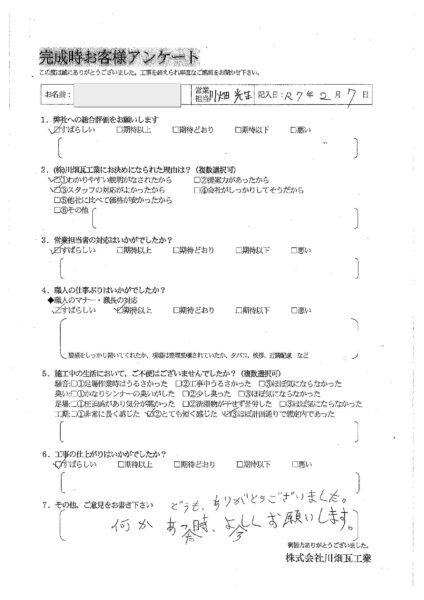 完成時お客様アンケート
この度は誠にありがとうございました。工事を終えられ率直なご感想をお聞かせ下さい。
お名前: 営業担当 川畑 先生 記入日: R7年 2月 7日
1. 弊社への総合評価をお願いします
☑すばらしい □期待以上 □期待どおり □期待以下 □悪い
2. (株)川畑瓦工業にお決めになられた理由は? (複数選択可)
☑①わかりやすい説明がなされたから □②提案力があったから
☑③スタッフの対応がよかったから □④会社がしっかりしてそうだから
□⑤他社に比べて価格が安かったから
□⑥その他
3. 営業担当者の対応はいかがでしたか?
☑すばらしい □期待以上 □期待どおり □期待以下 □悪い
4. 職人の仕事ぶりはいかがでしたか?
◆職人のマナー・職長の対応
☑すばらしい ☑期待以上 □期待どおり □期待以下 □悪い
整頓をしっかり着いてくれたか、現場は整理整頓されていたか、タバコ、挨拶、近隣配慮 など
5. 施工中の生活において、ご不便はございませんでしたか? (複数選択可)
騒音:□①足場作業時はうるさかった □②工事中うるさかった □③ほぼ気にならなかった
臭い:□①かなりシンナーの臭いがした □②少し臭った □③ほぼ気にならなかった
足場:□①圧迫感があり気分が悪かった □②洗濯物が干せず苦労した □③ほぼ気にならなかった
工期:□①非常に長く感じた ☑②とても短く感じた ☑③ほぼ計画通りで想定内であった
6. 工事の仕上がりはいかがでしたか?
☑すばらしい □期待以上 □期待どおり □期待以下 □悪い
7. その他、ご意見をお書き下さい
どうも、ありがとうございました。
何かあっ時、よろしくお願いします。
御協力ありがとうございました。
株式会社川畑瓦工業